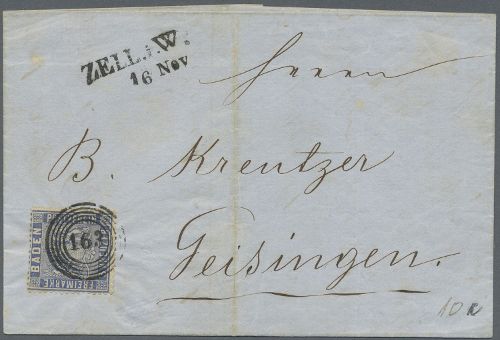 ZELL i. W.
16 Nov
Herrn
B. Kreutzer
Geisingen.
BADEN
FREIMARKE
163
10